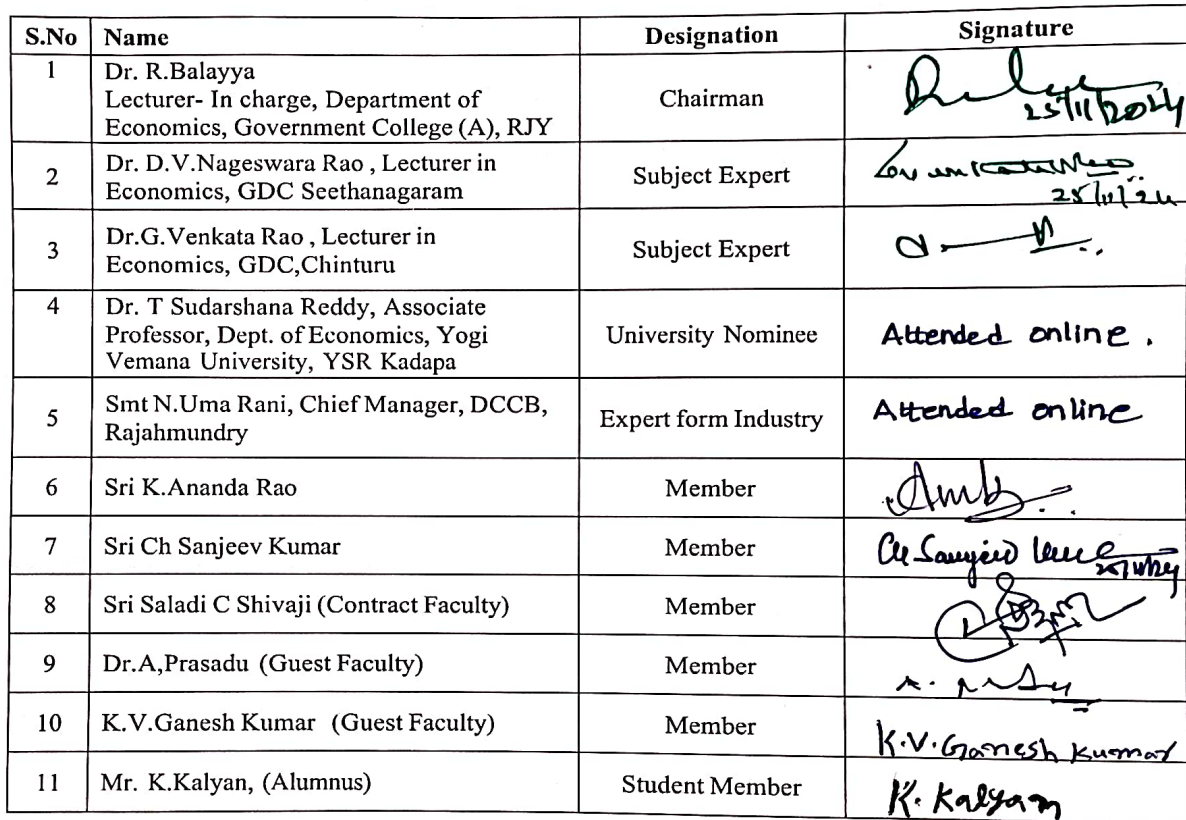 S.No Name Designation Signature
1 Dr. R.Balayya
Lecturer- In charge, Department of
Economics, Government College (A), RJY
Chairman
25/11/2024
2 Dr. D.V.Nageswara Rao , Lecturer in
Economics, GDC Seethanagaram
Subject Expert
25/11/24
3 Dr.G.Venkata Rao , Lecturer in
Economics, GDC,Chinturu
Subject Expert
4 Dr. T Sudarshana Reddy, Associate
Professor, Dept. of Economics, Yogi
Vemana University, YSR Kadapa
University Nominee
Attended online .
5 Smt N.Uma Rani, Chief Manager, DCCB,
Rajahmundry
Expert form Industry
Attended online
6 Sri K.Ananda Rao Member
7 Sri Ch Sanjeev Kumar Member Ch Sanjeev
25/11/24
8 Sri Saladi C Shivaji (Contract Faculty) Member
9 Dr.A,Prasadu (Guest Faculty) Member
10 K.V.Ganesh Kumar (Guest Faculty) Member K.V.Ganesh Kumar
11 Mr. K.Kalyan, (Alumnus) Student Member K. Kalyan